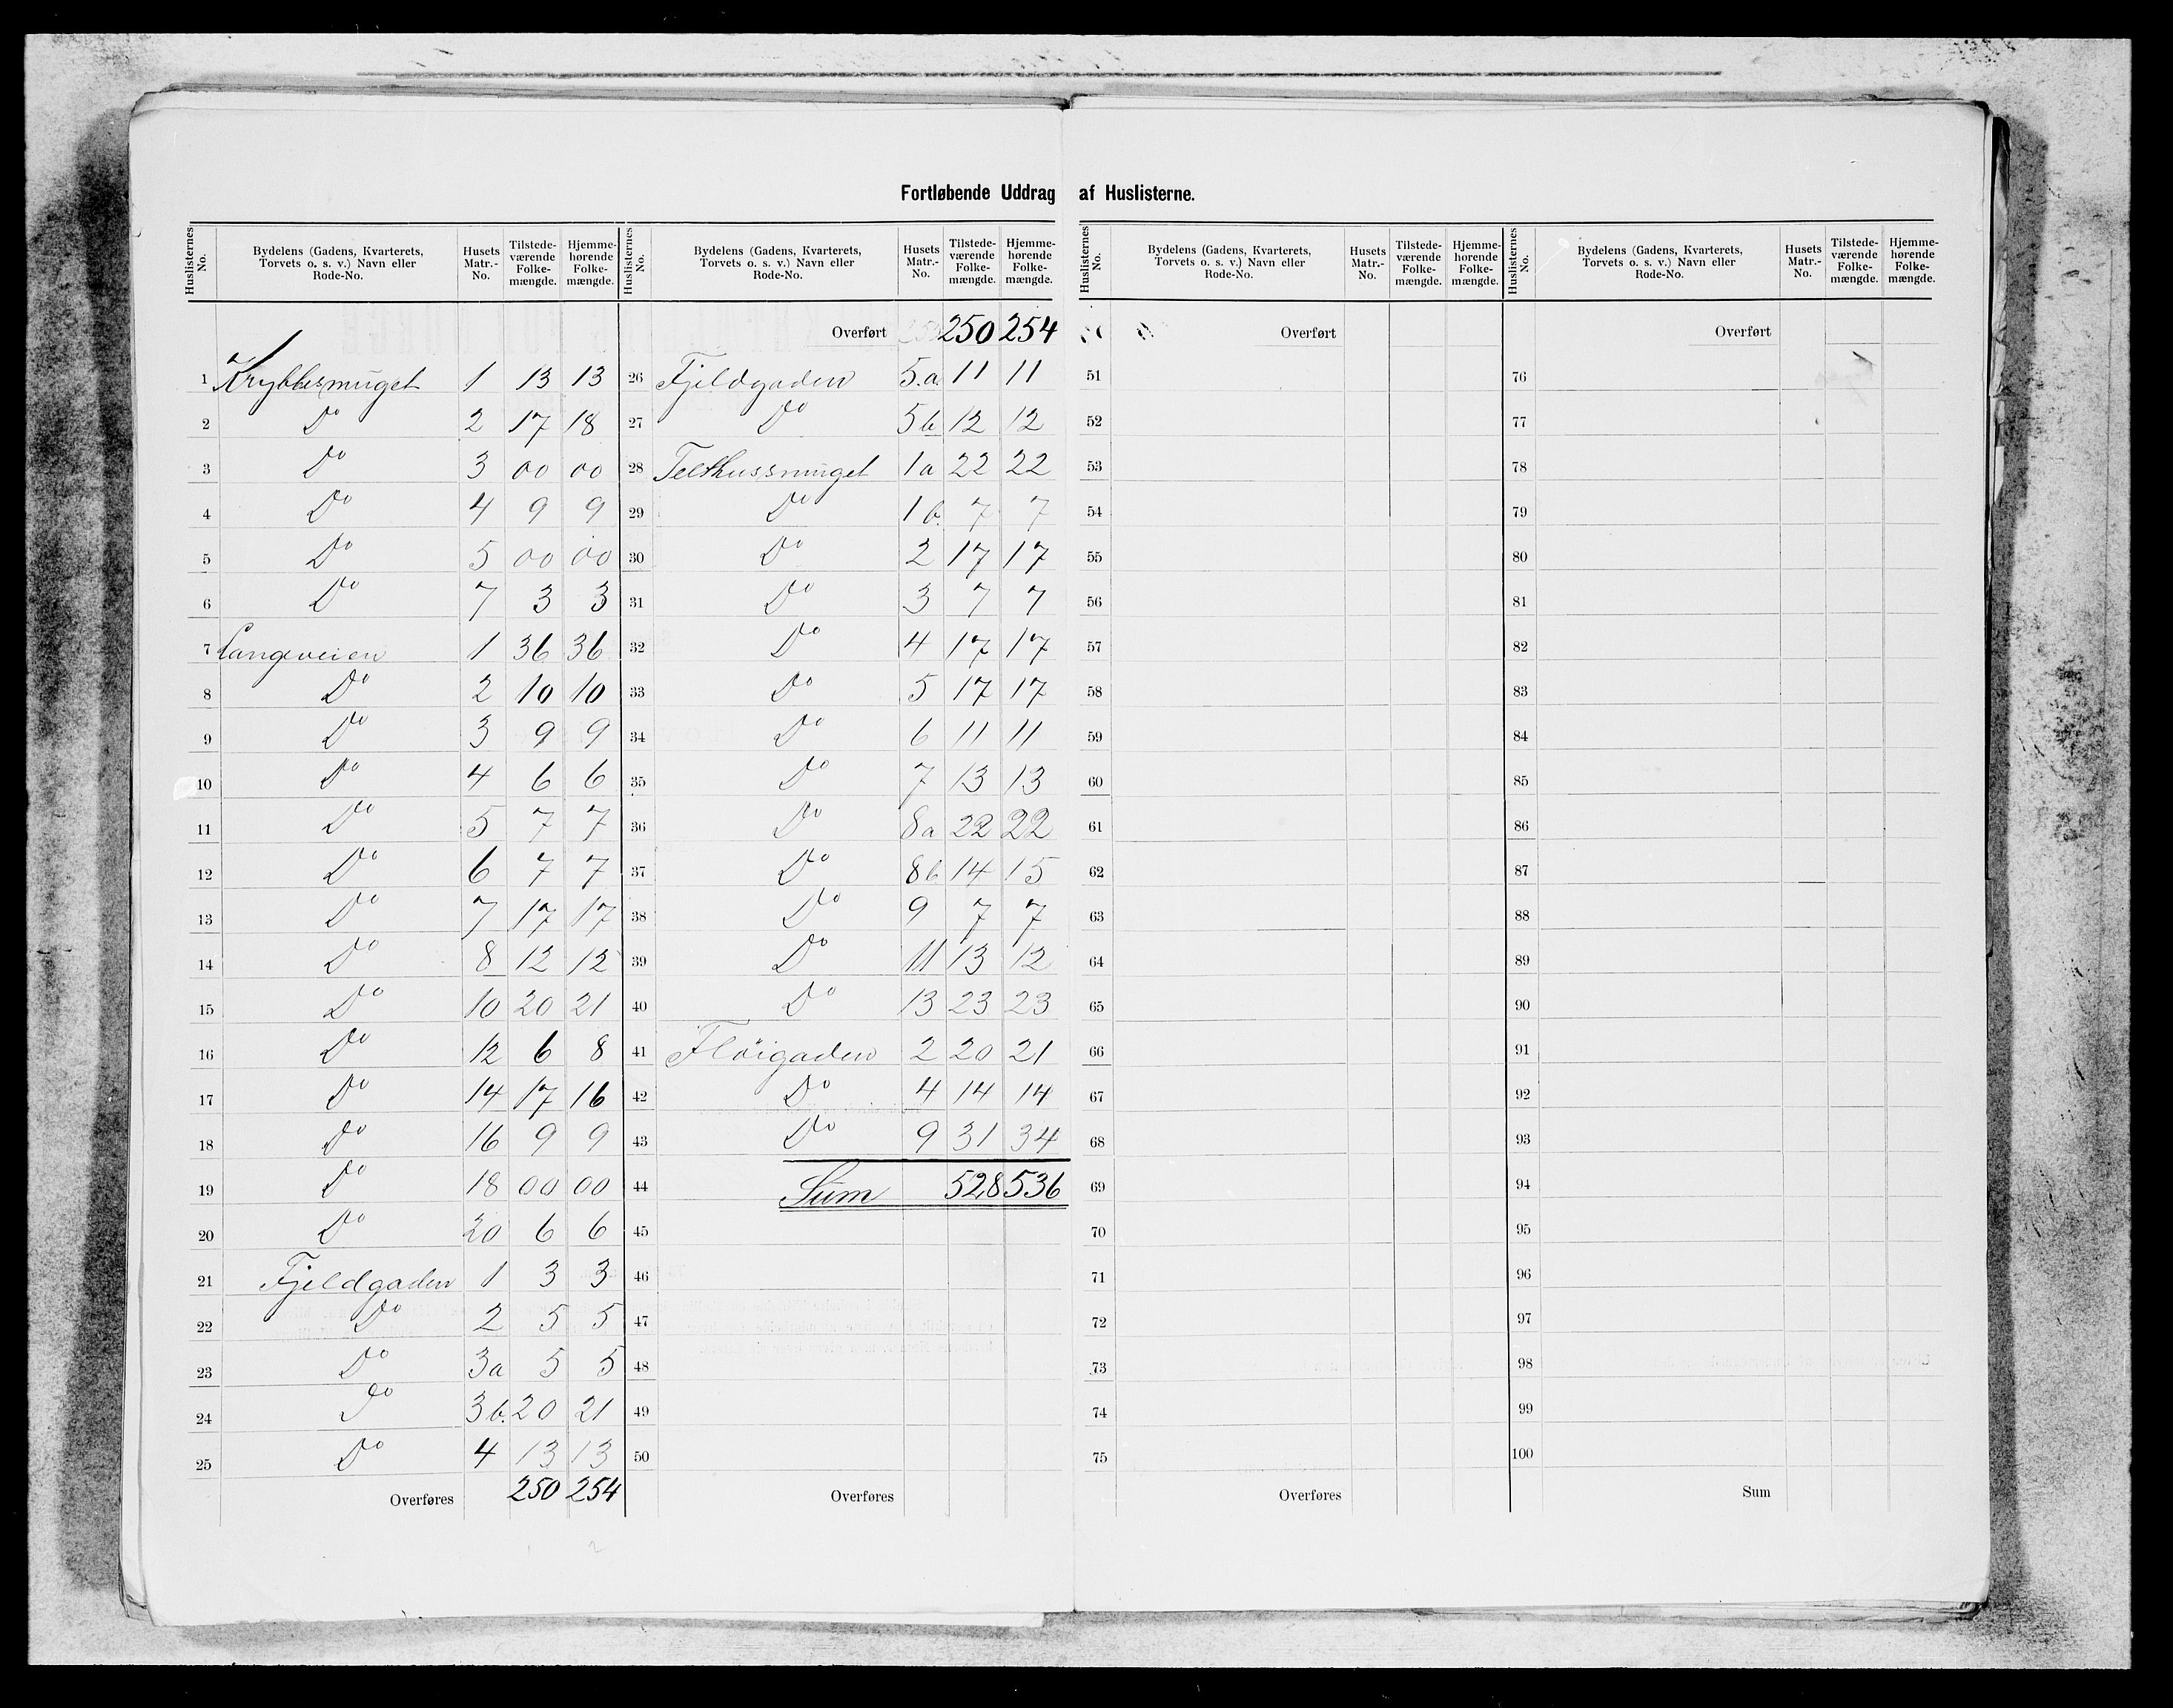 Fortløbende Uddrag af Huslisterne.
Huslisternes No. | Bydelens (Gadens, Kvarterets, Torvets o. s. v.) Navn eller Rode-No. | Husets Matr.-No. | Tilstedeværende Folkemængde. | Hjemmehørende Folkemængde.
1 Krybbesmuget 1 13 13
2 Do 2 17 18
3 Do 3 00 00
4 Do 4 9 9
5 Do 5 00 00
6 Do 7 3 3
7 Langeveien 1 36 36
8 Do 2 10 10
9 Do 3 9 9
10 Do 4 6 6
11 Do 5 7 7
12 Do 6 7 7
13 Do 7 17 17
14 Do 8 12 12
15 Do 10 20 21
16 Do 12 6 8
17 Do 14 17 16
18 Do 16 9 9
19 Do 18 00 00
20 Do 20 6 6
21 Fjeldgaden 1 3 3
22 Do 2 5 5
23 Do 3a 5 5
24 Do 3b. 20 21
25 Do 4 13 13
Overføres 250 254
Huslisternes No. | Bydelens (Gadens, Kvarterets, Torvets o. s. v.) Navn eller Rode-No. | Husets Matr.-No. | Tilstedeværende Folkemængde. | Hjemmehørende Folkemængde.
Overført 250 254
26 Fjeldgaden 5.a 11 11
27 Do 5b 12 12
28 Telthussmuget 1a 22 22
29 Do 1b. 7 7
30 Do 2 17 17
31 Do 3 7 7
32 Do 4 17 17
33 Do 5 17 17
34 Do 6 11 11
35 Do 7 13 13
36 Do 8a 22 22
37 Do 8b 14 15
38 Do 9 7 7
39 Do 11 13 12
40 Do 13 23 23
41 Fløigaden 2 20 21
42 Do 4 14 14
43 Do 9 31 34
44 Sum 528 536
45
46
47
48
49
50
Overføres
Huslisternes No. | Bydelens (Gadens, Kvarterets, Torvets o. s. v.) Navn eller Rode-No. | Husets Matr.-No. | Tilstedeværende Folkemængde. | Hjemmehørende Folkemængde.
Overført
51
52
53
54
55
56
57
58
59
60
61
62
63
64
65
66
67
68
69
70
71
72
73
74
75
Overføres
Huslisternes No. | Bydelens (Gadens, Kvarterets, Torvets o. s. v.) Navn eller Rode-No. | Husets Matr.-No. | Tilstedeværende Folkemængde. | Hjemmehørende Folkemængde.
Overført
76
77
78
79
80
81
82
83
84
85
86
87
88
89
90
91
92
93
94
95
96
97
98
99
100
Sum